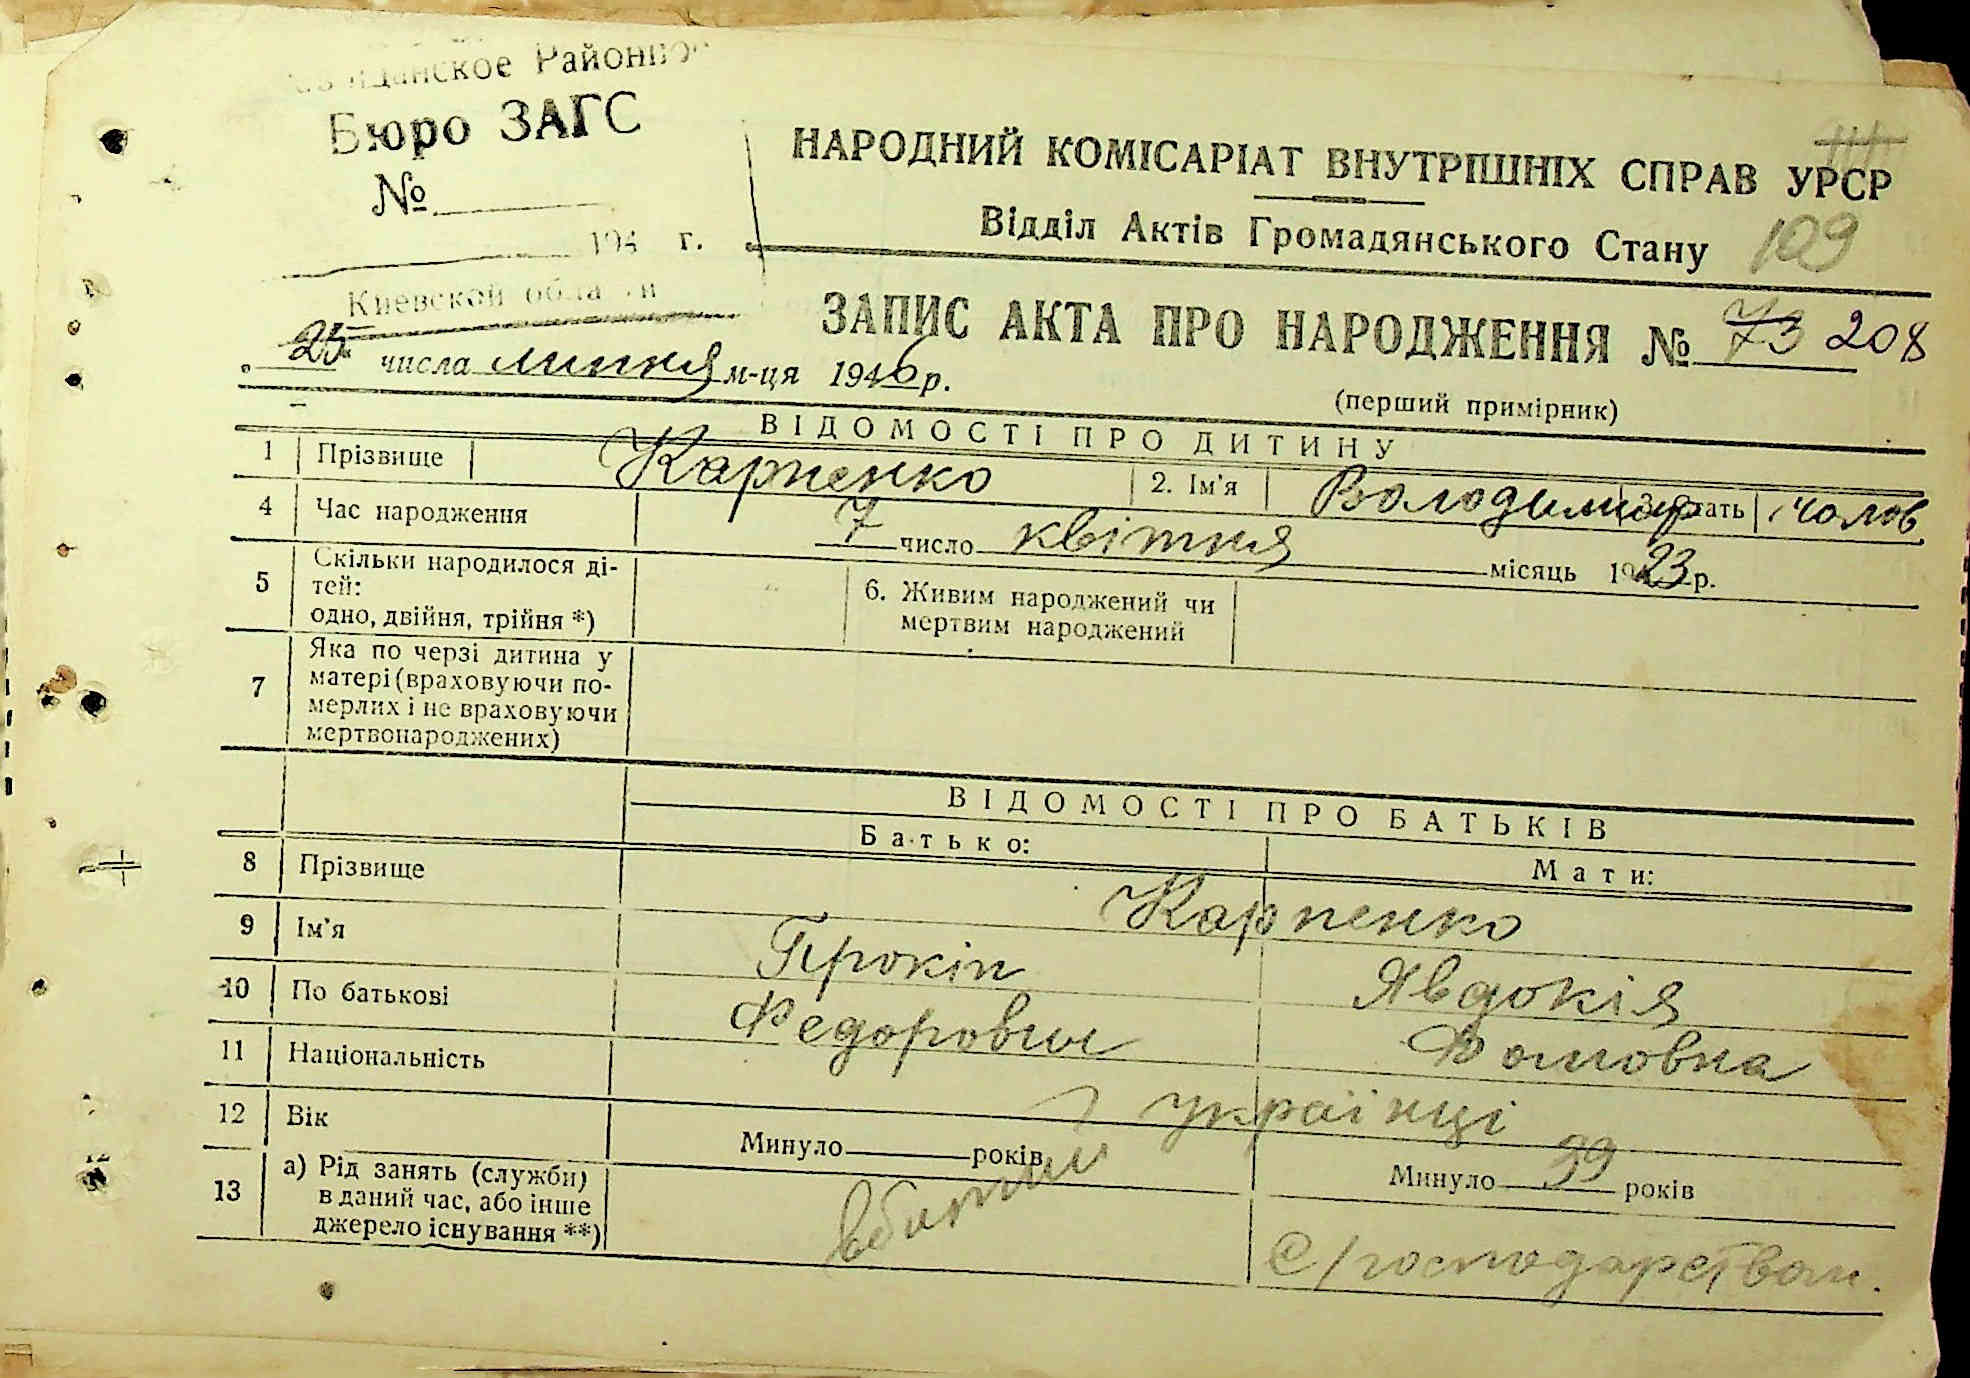 Районно
Бюро ЗАГС
№
194 г.
Киевской области
НАРОДНИЙ КОМІСАРІАТ ВНУТРІШНІХ СПРАВ УРСР
Відділ Актів Громадянського Стану 109
ЗАПИС АКТА ПРО НАРОДЖЕННЯ № 73 208
„25“ числа липня м-ця 1946 р.
(перший примірник)
ВІДОМОСТІ ПРО ДИТИНУ
1 Прізвище Карпенко 2. Ім'я Володимир 3. Стать чолов
4 Час народження 7 число квітня місяць 1923 р.
5 Скільки народилося ді-
тей:
одно, двійня, трійня *)
6. Живим народжений чи
мертвим народжений
7 Яка по черзі дитина у
матері (враховуючи по-
мерлих і не враховуючи
мертвонароджених)
ВІДОМОСТІ ПРО БАТЬКІВ
Батько: Мати:
8 Прізвище Карпенко
9 Ім'я Прокіп Явдокія
10 По батькові Федорович Домовна
11 Національність українці
12 Вік Минуло років Минуло 39 років
13 а) Рід занять (служби)
в даний час, або інше
джерело існування **)
вбитий
С/господарством.